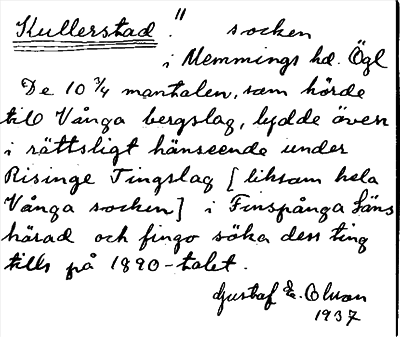 Kullerstad." socken
i Memmings hd. Ögl
De 10 3/4 mantalen, som hörde
till Vånga bergslag, lydde även
i rättsligt hänseende under
Risinge Tingslag [liksom hela
Vånga socken] i Finspånga Läns
härad och fingo söka dess ting
tills på 1890-talet.
Gustaf E. Olson
1937